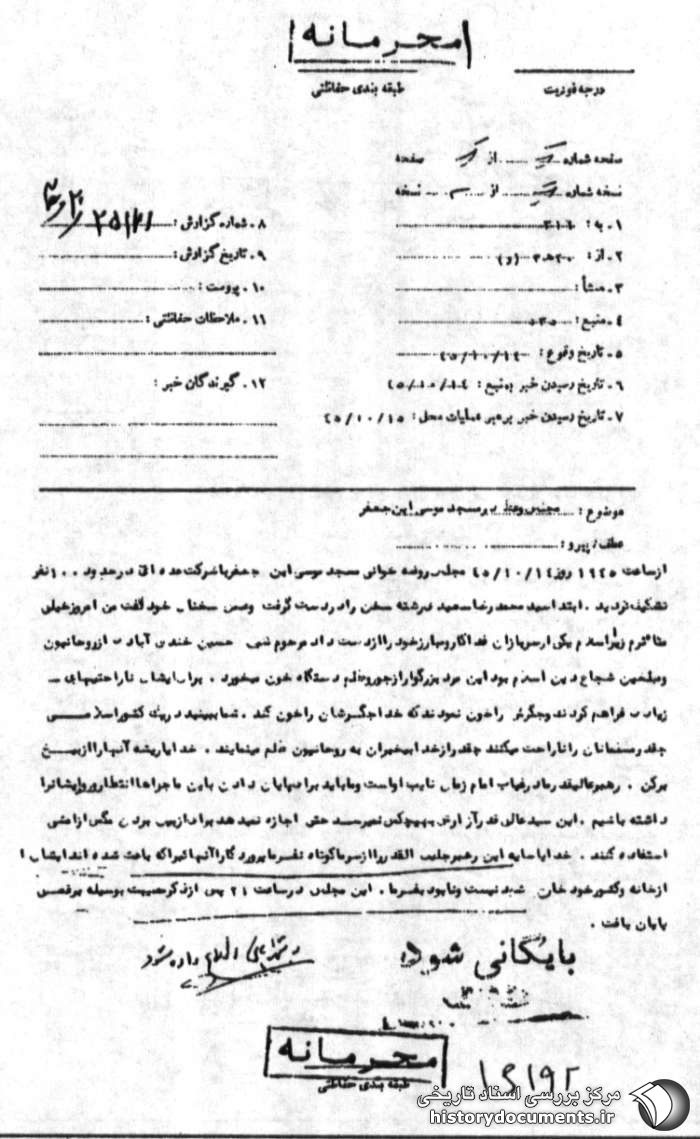 محرمانه
درجه فوریت
طبقه بندی حفاظتی
صفحه شماره ... از ... صفحه
نسخه شماره ... از ... نسخه
۱ـ به : ۳۱۶
۲ـ از : ۲۰ه۳ (و)
۳ـ منشأ :
۴ـ منبع :
۵ـ تاریخ وقوع : ۴۵/۱۰/۱۴
۶ـ تاریخ رسیدن خبر بمنبع : ۴۵/۱۰/۱۴
۷ـ تاریخ رسیدن خبر برهبر عملیات محل : ۴۵/۱۰/۱۵
۸ـ شماره گزارش :
۹ـ تاریخ گزارش :
۱۰ـ پیوست :
۱۱ـ ملاحظات حفاظتی :
۱۲ـ گیرندگان خبر :
موضوع : مجلس وعظ در مسجد موسی ابن جعفر
عطف/پیرو :
از ساعت ۱۹۴۵ روز ۴۵/۱۰/۱۴ مجلس روضه خوانی مسجد موسی ابن جعفر با شرکت عده ای در حدود ۱۰۰ نفر
تشکیل گردید . ابتدا سید محمد رضا سعیدی رشته سخن را در دست گرفت وضمن سخنان خود گفت من امروز خیلی
متأثرم زیرا اسلام یکی از سربازان فداکار ومبارز خود را از دست داد مرحوم حسین خندق آبادی از روحانیون
ومبلغین شجاع دین اسلام بود این مرد بزرگوار از جور وظلم دستگاه خون میخورد . برای ایشان ناراحتیهای ـ
زیادی فراهم کردند وجگرش را خون نمودند که خدا جگرشان را خون کند . شما ببینید در یک کشور اسلامـی
چقدر مسلمانان را ناراحت میکنند چقدر از خدا بیخبران به روحانیون ظلم مینمایند . خدایا ریشه آنها را از بیـخ
برکن . رهبر عالیقدر ما در غیاب امام زمان نایب اواست وما باید برای پایان دادن باین ماجراها انتظار ورود ایشانرا
داشته باشیم . این سید عالی قدر آزارش بهیچکس نمیرسد حتی اجازه نمیدهد برای از بین بردن مگس از امشی
استفاده کنند . خدایا سایه این رهبر جلیل القدر را از سر ما کوتاه نفرما پروردگارا آنهائیرا که باعث شده اند ایشان
از خانه وکشور خود خارج شود نیست ونابود بفرما . این مجلس در ساعت ۲۱ پس از ذکر مصیبت بوسیله
پایان یافت .
بایگانی شود
محرمانه
طبقه بندی حفاظتی
۱۶۱۹۲
مرکز بررسی اسناد تاریخی
historydocuments.ir